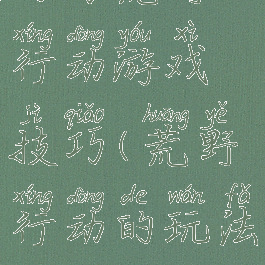 xíng dòng yóu xì
行动游戏
jì qiǎo huāng yě
技巧(荒野
xíng dòng de wán fǎ
行动的玩法